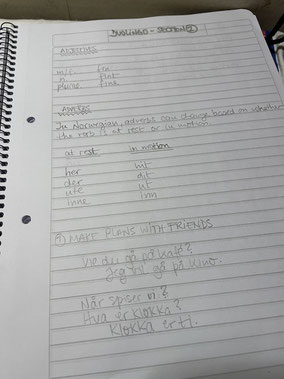 DUOLINGO - SECTION 2
ADJECTIVES
m/f. fin
n fint
plural fine
ADVERBS
In Norwegian, adverbs can change based on whether
the verb is at rest or in motion.
at rest in motion
her hit
der dit
ute ut
inne inn
MAKE PLANS WITH FRIENDS
Vil du gå på kafé?
Jeg vil gå på kino.
Når spiser vi?
Hva er klokka?
Klokka er